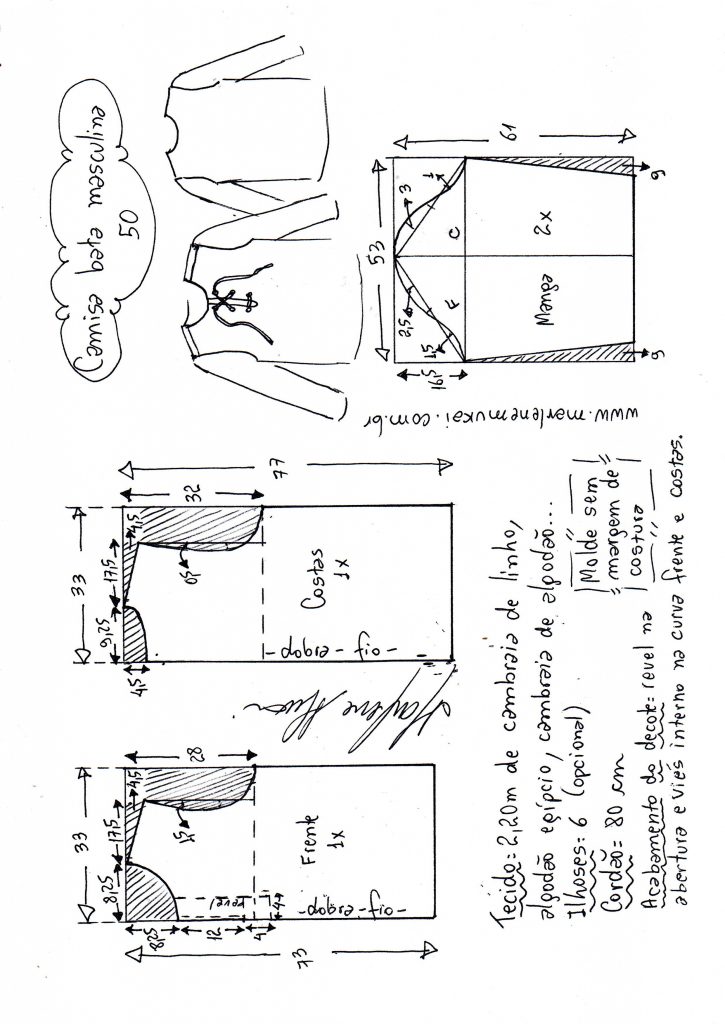 Camisa bata masculina
50
33
8,25
17,5
4,5
8,25
12
4
28
73
1,5
revel
4
Frente
1x
-dobra-fio-
33
9,25
17,5
4,5
4,5
32
77
0,5
Costas
1x
-dobra-fio-
53
16,5
61
1,5
2,5
3
1
F
C
Manga
2x
9
9
www.marlenemukai.com.br
Tecido: 2,20m de cambraia de linho,
algodão egípcio, cambraia de algodão...
Ilhoses: 6 (opcional)
Cordão: 80 cm
Acabamento do decote: revel na
abertura e viés interno na curva frente e costas.
Molde sem
margem de
costura